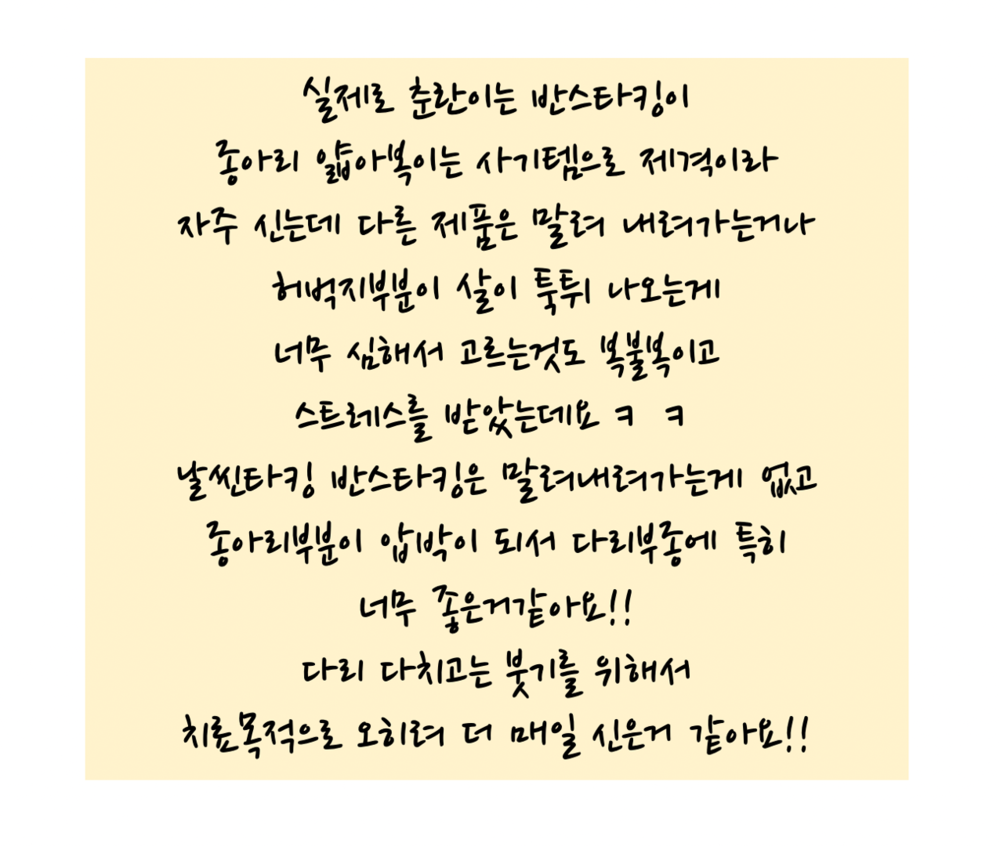 실제로 춘란이는 반스타킹이
종아리 얇아복이는 사기템으로 제격이라
자주 신는데 다른 제품은 말려 내려가는거나
허벅지부분이 살이 툭튀 나오는게
너무 심해서 고르는것도 복불복이고
스트레스를 받았는데요 ㅋ ㅋ
날씬타킹 반스타킹은 말려내려가는게 없고
종아리부분이 압박이 되서 다리부종에 특히
너무 좋은거같아요!!
다리 다치고는 붓기를 위해서
치료목적으로 오히려 더 매일 신은거 같아요!!